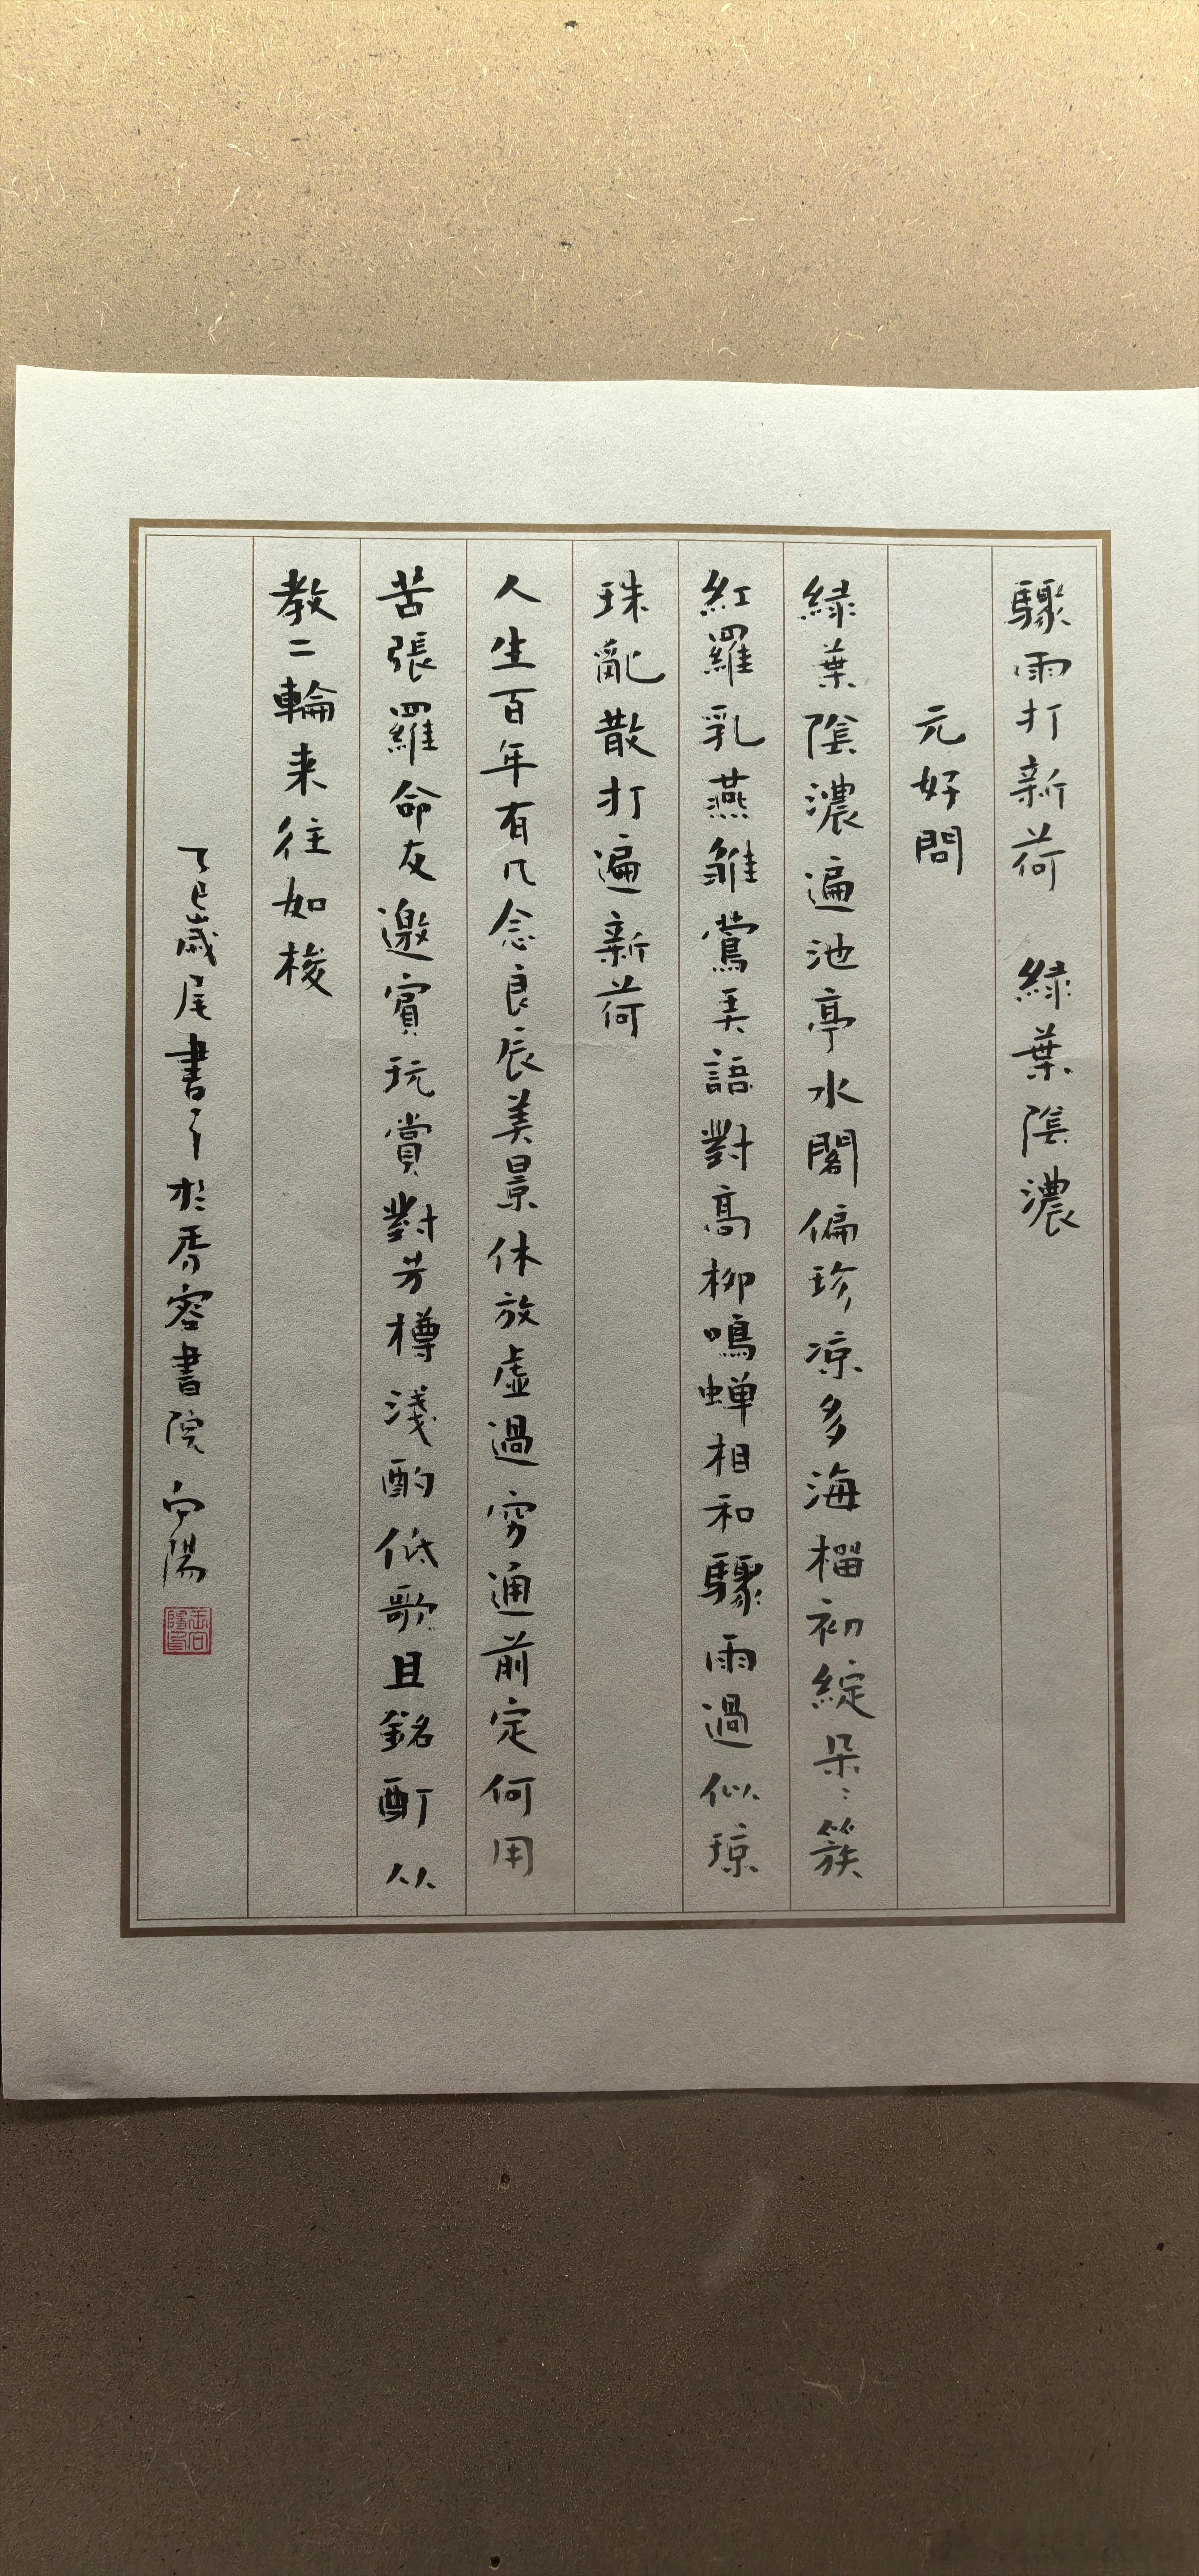 驟雨打新荷 緑葉陰濃
元好問
緑葉陰濃遍池亭水閣偏珍凉多海榴初綻朵〻簇
紅羅乳燕雛鶯弄語對高柳鳴蝉相和驟雨過似瓊
珠亂散打遍新荷
人生百年有几念良辰美景休放虚過窮通前定何用
苦張羅命友邀賓玩賞對芳樽淺酌低歌且銘酊从
教二輪来往如梭
乙巳歲尾書於香容書院 向陽